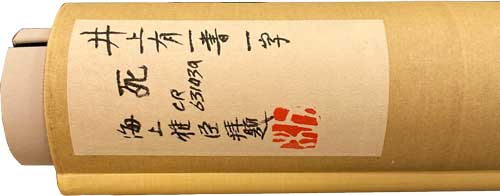 井上有一書 一字
死 CR
63143a
海上雅臣拝題